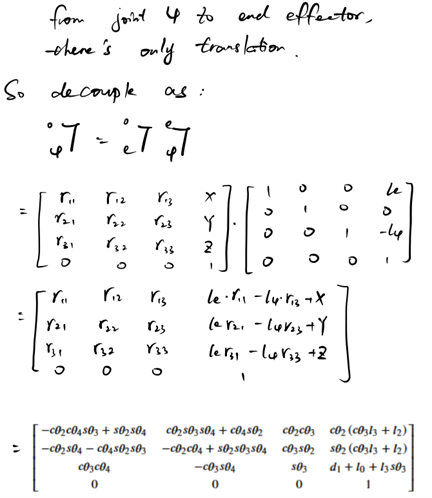 from joint 4 to end effector,
there's only translation.
So decouple as:
⁰₄T = ⁰ₑT ᵉ₄T
= [ r₁₁ r₁₂ r₁₃ X ; r₂₁ r₂₂ r₂₃ Y ; r₃₁ r₃₂ r₃₃ Z ; 0 0 0 1 ] · [ 1 0 0 le ; 0 1 0 0 ; 0 0 1 -l4 ; 0 0 0 1 ]
= [ r₁₁ r₁₂ r₁₃ le·r₁₁ - l4·r₁₃ + X ; r₂₁ r₂₂ r₂₃ le r₂₁ - l4 r₂₃ + Y ; r₃₁ r₃₂ r₃₃ le r₃₁ - l4 r₃₃ + Z ; 0 0 0 1 ]
= [ -cθ₂cθ₄sθ₃ + sθ₂sθ₄ cθ₂sθ₃sθ₄ + cθ₄sθ₂ cθ₂cθ₃ cθ₂(cθ₃l₃ + l₂) ; -cθ₂sθ₄ - cθ₄sθ₂sθ₃ -cθ₂cθ₄ + sθ₂sθ₃sθ₄ cθ₃sθ₂ sθ₂(cθ₃l₃ + l₂) ; cθ₃cθ₄ -cθ₃sθ₄ sθ₃ d₁ + l₀ + l₃sθ₃ ; 0 0 0 1 ]